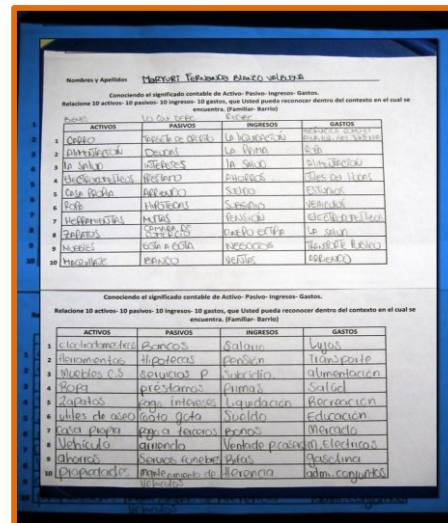 Nombres y Apellidos MARYURI FERNANDA BLANCO VALBUENA
Conociendo el significado contable de Activo- Pasivo- Ingresos- Gastos.
Relacione 10 activos- 10 pasivos- 10 ingresos- 10 gastos, que Usted pueda reconocer dentro del contexto en el cual se
encuentra. (Familiar- Barrio)
BIENES LO QUE DEBE RECIBE
ACTIVOS PASIVOS INGRESOS GASTOS
1 CARRO TARJETA DE CREDITO LA LIQUIDACION
2 ALIMENTACIÓN DEUDAS LA PRIMA ROPA
3 LA SALUD INTERESES LA SALUD ALIMENTACION
4 ELECTRODOMESTICOS PRESTAMO AHORROS UTILES DEL HOGAR
5 CASA PROPIA ARRIENDO SUELDO ESTUDIOS
6 ROPA HIPOTECAS SUBSIDIO VEHICULOS
7 HERRAMIENTAS MULTAS PENSIÓN ELECTRODOMESTICOS
8 ZAPATOS CAMARA DE COMERCIO DINERO EXTRA LA SALUD
9 MUEBLES GOTA A GOTA NEGOCIOS TRANSPORTE PUBLICO
10 MAQUILLAJE BANCO VENTAS ARRIENDO
Conociendo el significado contable de Activo- Pasivo- Ingresos- Gastos.
Relacione 10 activos- 10 pasivos- 10 ingresos- 10 gastos, que Usted pueda reconocer dentro del contexto en el cual se
encuentra. (Familiar- Barrio)
ACTIVOS PASIVOS INGRESOS GASTOS
1 Bancos Salario Lujos
2 Herramientas Hipotecas pensión Transporte
3 Muebles C.S servicios P Subsidio alimentación
4 Ropa prestamos primas Salud
5 Zapatos pago intereses Liquidación Recreación
6 utiles de aseo Gota gota Sueldo Educación
7 Casa propia pago a terceros Bonos Mercado
8 Vehículo arriendo M. Electricos
9 ahorros Servicios funebres Rifas gasolina
10 propiedades mantenimiento de vehiculos Herencia adm. conjuntos